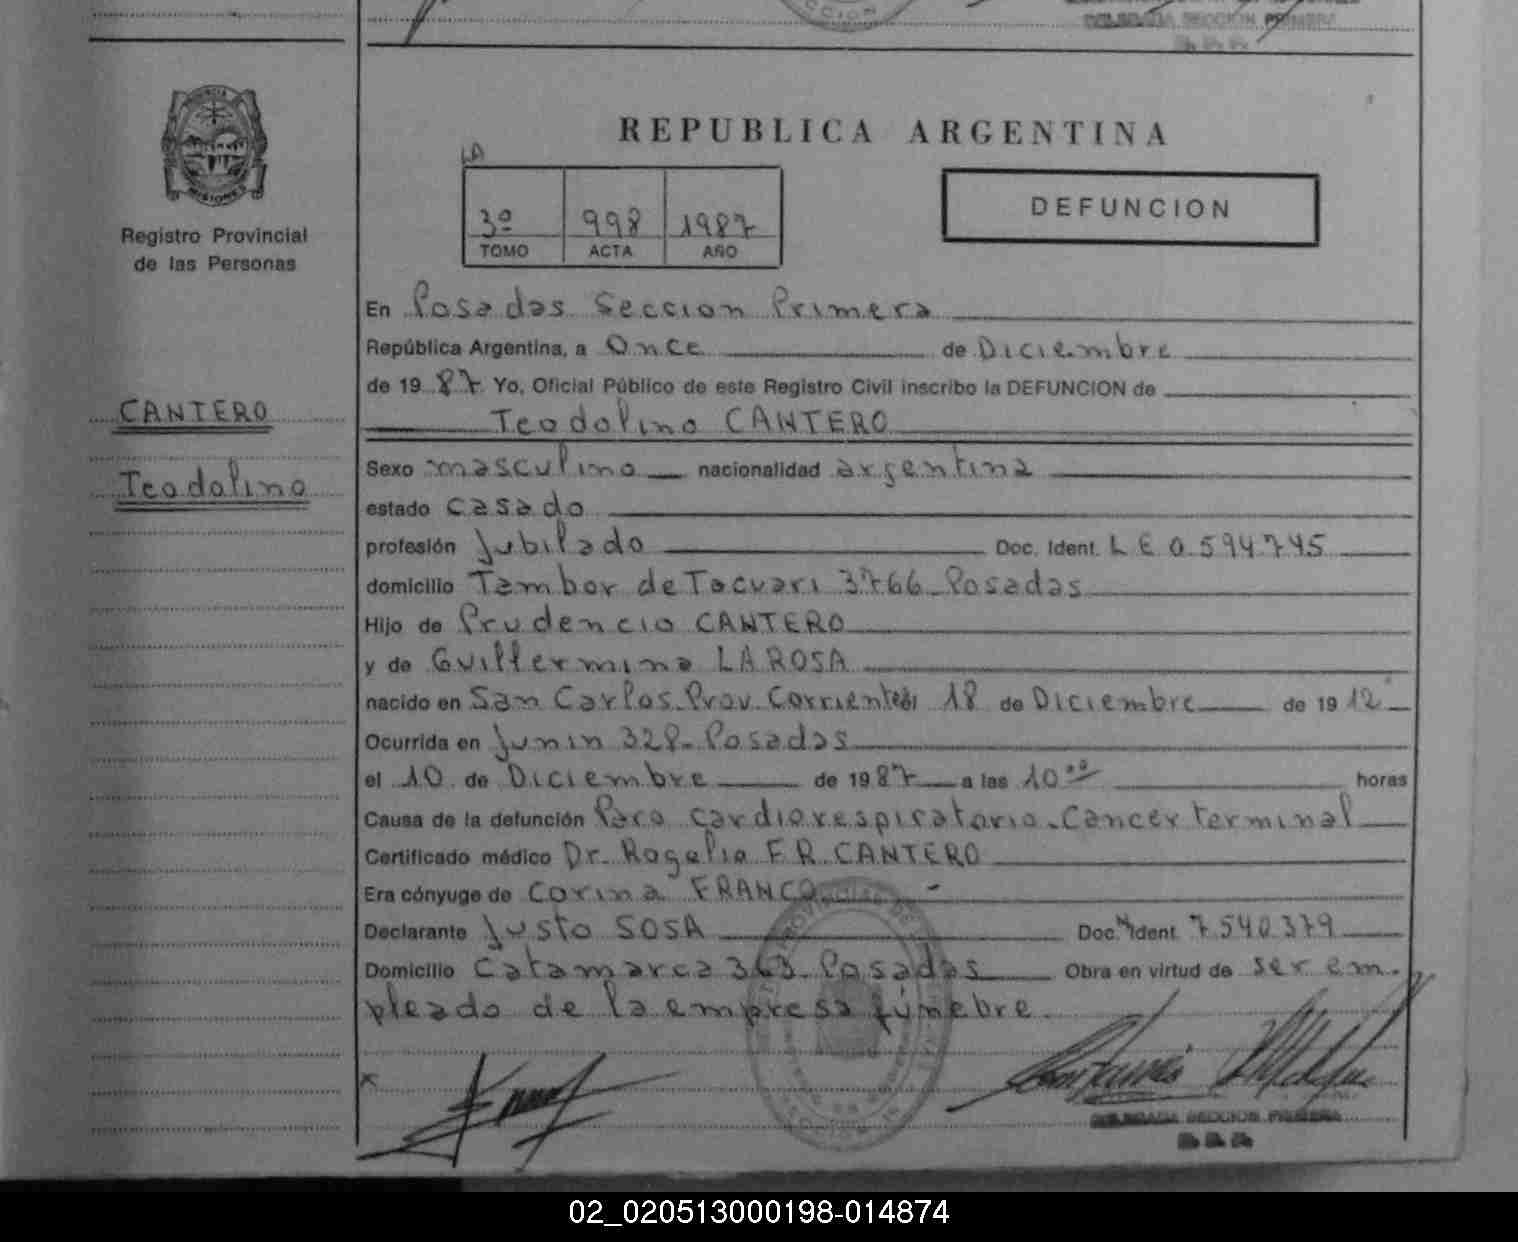 DELEGADA SECCION PRIMERA
PROVINCIA
MISIONES
Registro Provincial
de las Personas
CANTERO
Teodolino
REPUBLICA ARGENTINA
LA
3º 998 1987
TOMO ACTA AÑO
DEFUNCION
En Posadas Seccion Primera
República Argentina, a Once de Diciembre
de 19 87 Yo, Oficial Público de este Registro Civil inscribo la DEFUNCION de
Teodolino CANTERO
Sexo masculino nacionalidad argentina
estado casado
profesión Jubilado Doc. Ident. L E 0.594.745
domicilio Tambor de Tacuari 3766 Posadas
Hijo de Prudencio CANTERO
y de Guillermina LAROSA
nacido en San Carlos. Prov. Corrientes 18 de Diciembre de 19 12
Ocurrida en Junin 328- Posadas
el 10 de Diciembre de 19 87 a las 10 ºº horas
Causa de la defunción Paro cardiorespiratorio. Cancer terminal
Certificado médico Dr. Rogelio F.R. CANTERO
Era cónyuge de Corina FRANCO -
Declarante Justo SOSA Doc. Ident. 7.540.379
Domicilio Catamarca 363 Posadas Obra en virtud de ser em-
pleado de la empresa fúnebre.
DELEGADA SECCION PRIMERA
02_020513000198-014874